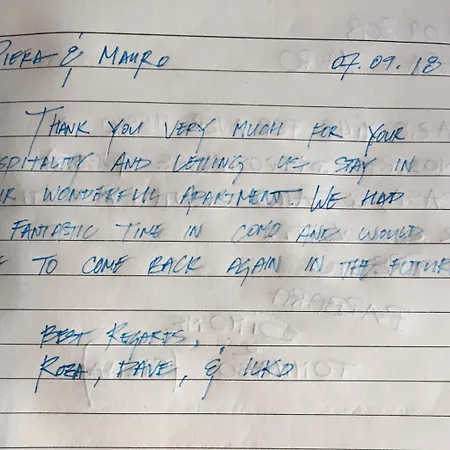 PIERA & MAURO 07.09.18
THANK YOU VERY MUCH FOR YOUR
SPITALITY AND LETTING US STAY IN
UR WONDERFUL APARTMENT. WE HAD
FANTASTIC TIME IN COMO AND WOULD
E TO COME BACK AGAIN IN THE FUTUR
BEST REGARDS,
ROZA, DAVE, & ILKO
BARBARA